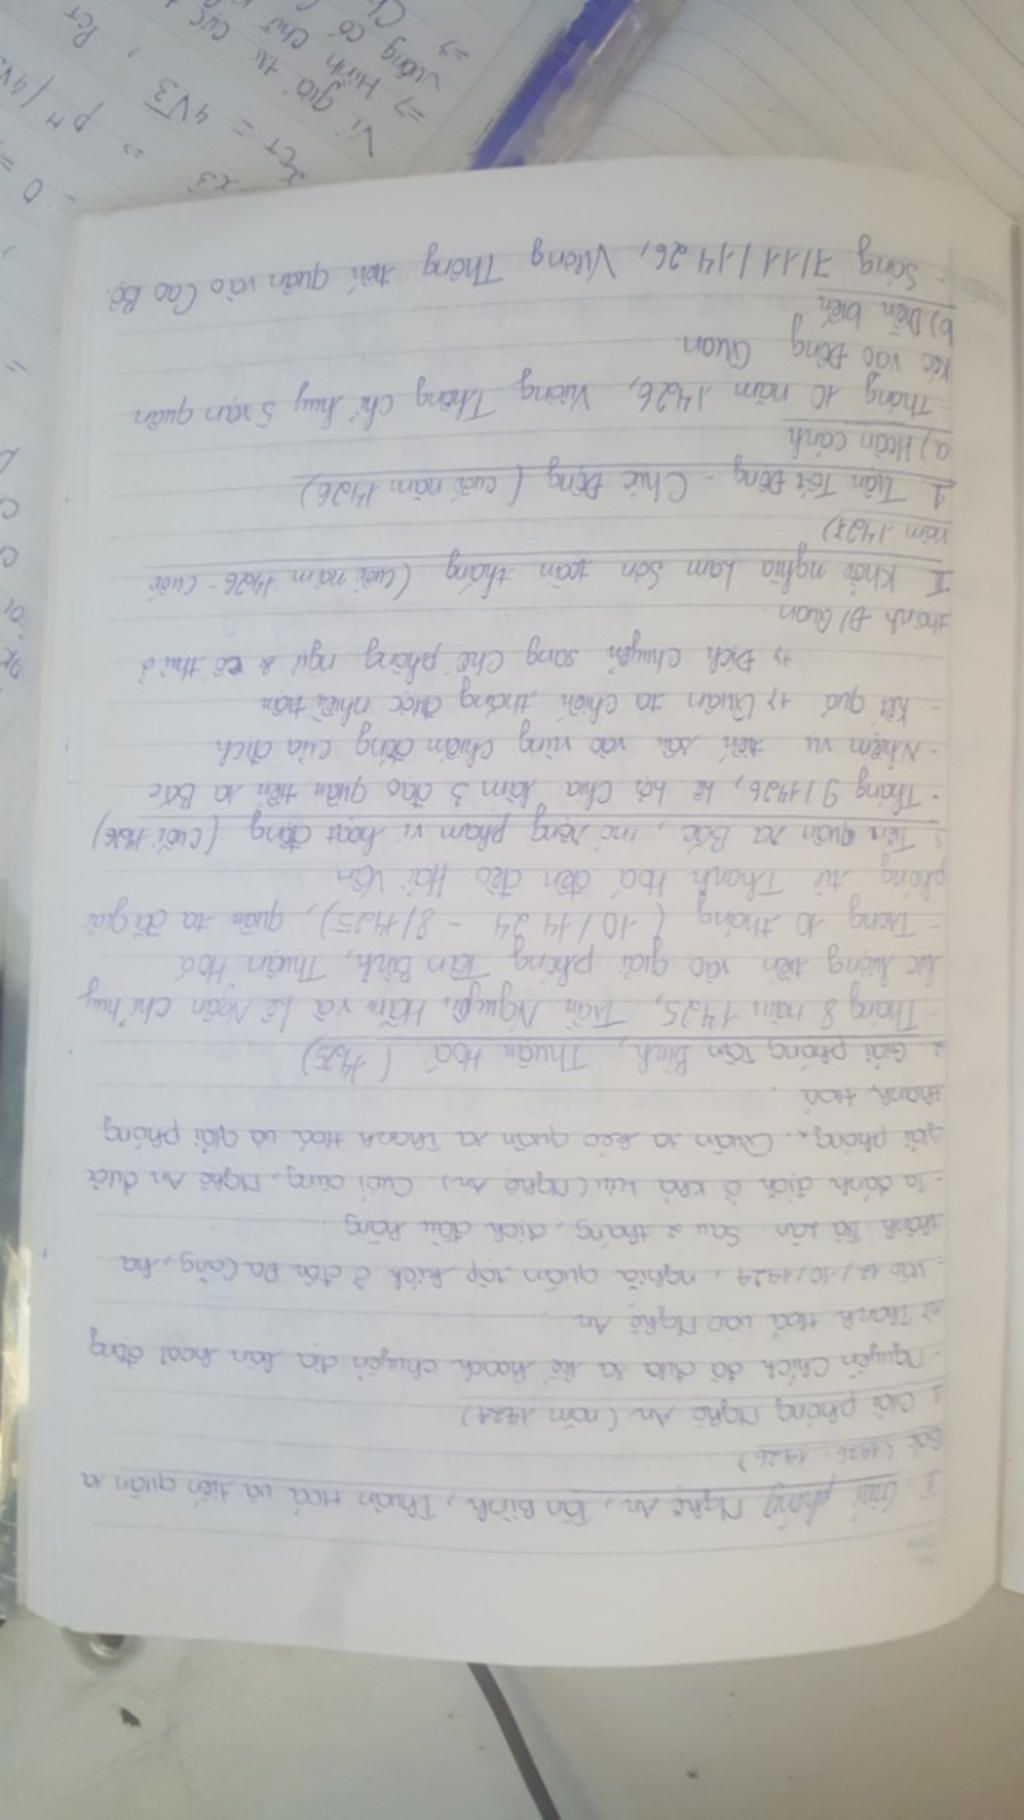 I. Giải phóng Nghệ An, Tân Bình, Thuận Hoá và tiến quân ra
Bắc (1426 - 1426)
1 Giải phóng Nghệ An (năm 1424)
- Nguyễn Chích đã đưa ra kế hoạch chuyển địa bàn hoạt động
từ Thanh Hoá vào Nghệ An
- Vào 12/10/1424, nghĩa quân tập kích ở đồn Đa Căng, hạ
thành Trà Lân. Sau 2 tháng, địch đầu hàng
- Ta đánh địch ở Khả Lưu (Nghệ An). Cuối cùng, Nghệ An được
giải phóng. Quân ta kéo quân ra Thanh Hoá và giải phóng
Thanh Hoá.
2 Giải phóng Tân Bình, Thuận Hoá (1425)
- Tháng 8 năm 1425, Trần Nguyên Hãn và Lê Ngân chỉ huy
lực lượng tiến vào giải phóng Tân Bình, Thuận Hoá
- Trong 10 tháng (10/1424 - 8/1425), quân ta đã giải
phóng từ Thanh Hoá đến đèo Hải Vân
3 Tiến quân ra Bắc, mở rộng phạm vi hoạt động (cuối 1426)
- Tháng 9/1426, kế hđ chia làm 3 đạo quân tiến ra Bắc
- Nhiệm vụ tiến sâu vào vùng chiếm đóng của địch
- Kết quả +) Quân ta chiến thắng được nhiều trận
+) Địch chuyển sang chế phòng ngự & cố thủ ở
thành Đ/Quan.
II Khởi nghĩa Lam Sơn toàn thắng (cuối năm 1426 - cuối
năm 1427)
1 Trận Tốt Động - Chúc Động (cuối năm 1426)
a) Hoàn cảnh
- Tháng 10 năm 1426, Vương Thông chỉ huy 5 vạn quân
kéo vào Đông Quan.
b) Diễn biến
- Sáng 7/11/1426, Vương Thông tiến quân vào Cao Bộ.
= 4√3
Vì giá trị cực
=> Hình chữ
vuông có